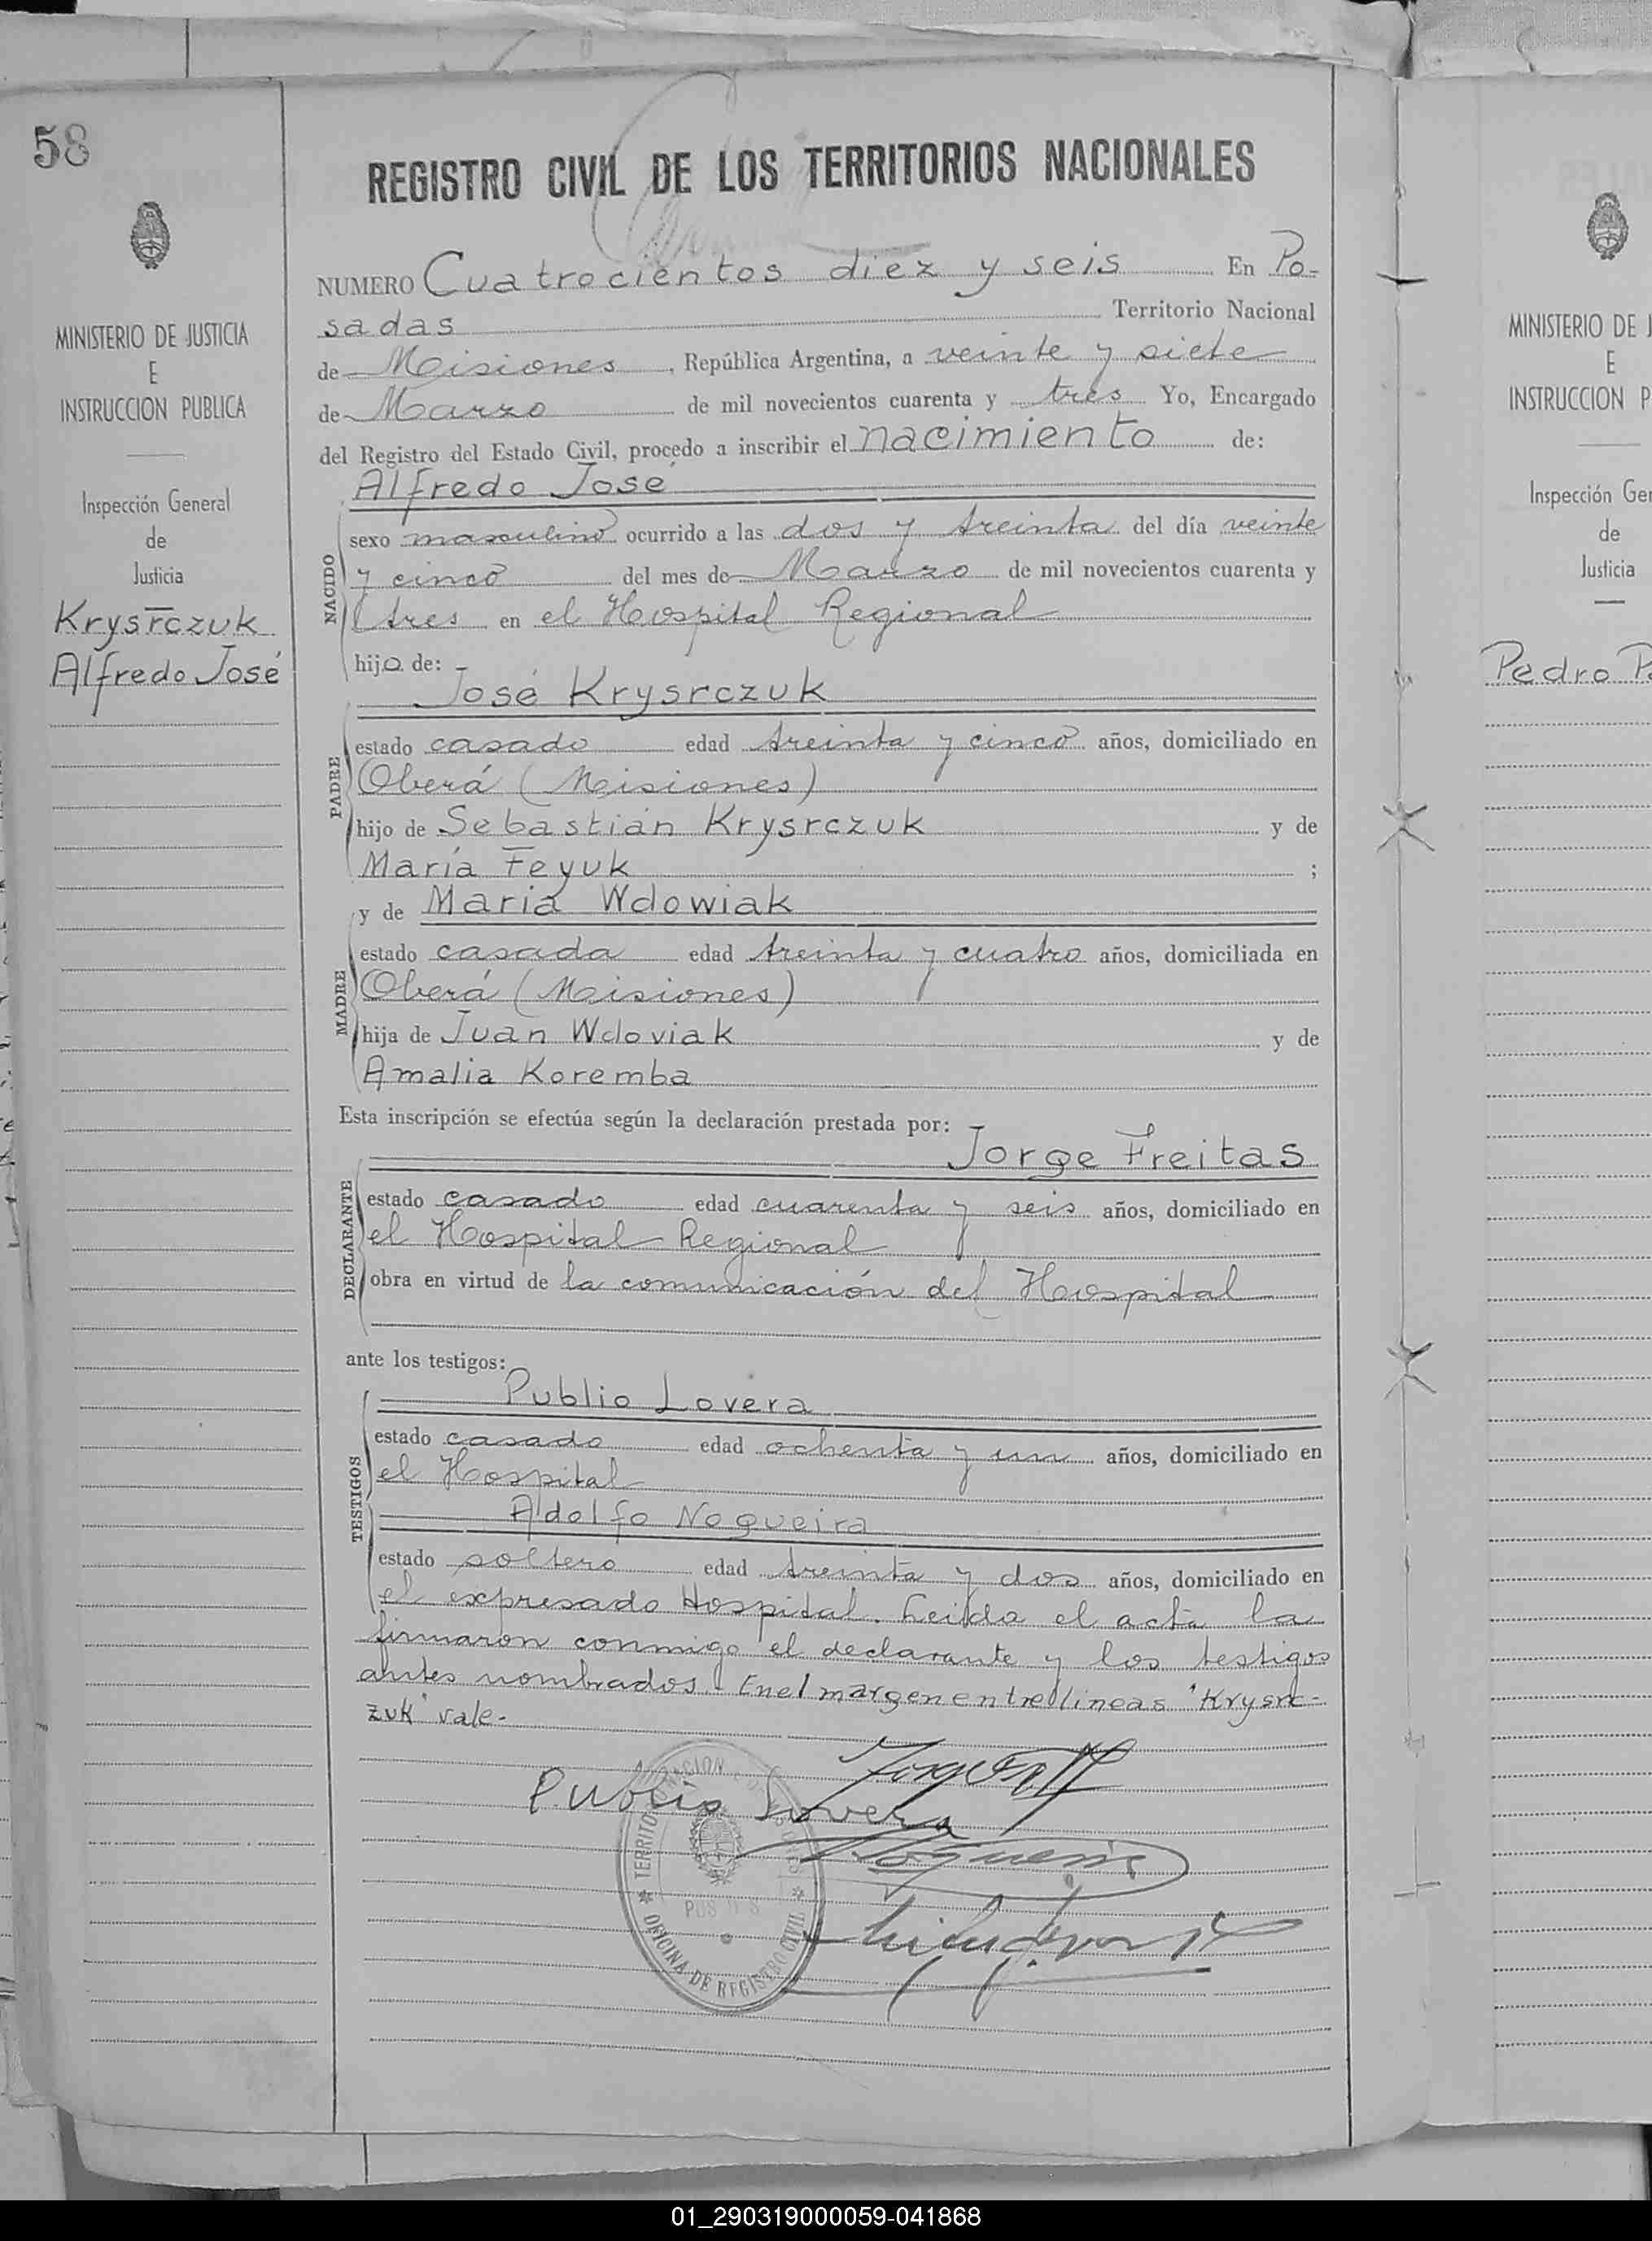 58
MINISTERIO DE JUSTICIA
E
INSTRUCCION PUBLICA
Inspección General
de
Justicia
Krysrczuk
Alfredo José
REGISTRO CIVIL DE LOS TERRITORIOS NACIONALES
NUMERO Cuatrocientos diez y seis En Po-
sadas Territorio Nacional
de Misiones, República Argentina, a veinte y siete
de Marzo de mil novecientos cuarenta y tres Yo, Encargado
del Registro del Estado Civil, procedo a inscribir el nacimiento de:
Alfredo José
NACIDO
sexo masculino ocurrido a las dos y treinta del día veinte
y cinco del mes de Marzo de mil novecientos cuarenta y
tres en el Hospital Regional
hijo de:
José Krysrczuk
PADRE
estado casado edad treinta y cinco años, domiciliado en
Oberá (Misiones)
hijo de Sebastián Krysrczuk y de
María Feyuk ;
y de María Wdowiak
MADRE
estado casada edad treinta y cuatro años, domiciliada en
Oberá (Misiones)
hija de Juan Wdoviak y de
Amalia Koremba
Esta inscripción se efectúa según la declaración prestada por:
Jorge Freitas
DECLARANTE
estado casado edad cuarenta y seis años, domiciliado en
el Hospital Regional
obra en virtud de la comunicación del Hospital
ante los testigos:
Publio Lovera
TESTIGOS
estado casado edad ochenta y un años, domiciliado en
el Hospital
Adolfo Nogueira
estado soltero edad treinta y dos años, domiciliado en
el expresado Hospital. Leída el acta la
firmaron conmigo el declarante y los testigos
antes nombrados. En el margen entre lineas "Krysrc-
zuk" vale.-
Publio Lovera
Nogueira
OFICINA DE REGISTRO CIVIL
MINISTERIO DE J
E
INSTRUCCION P
Inspección Ge
de
Justicia
Pedro P
01_290319000059-041868